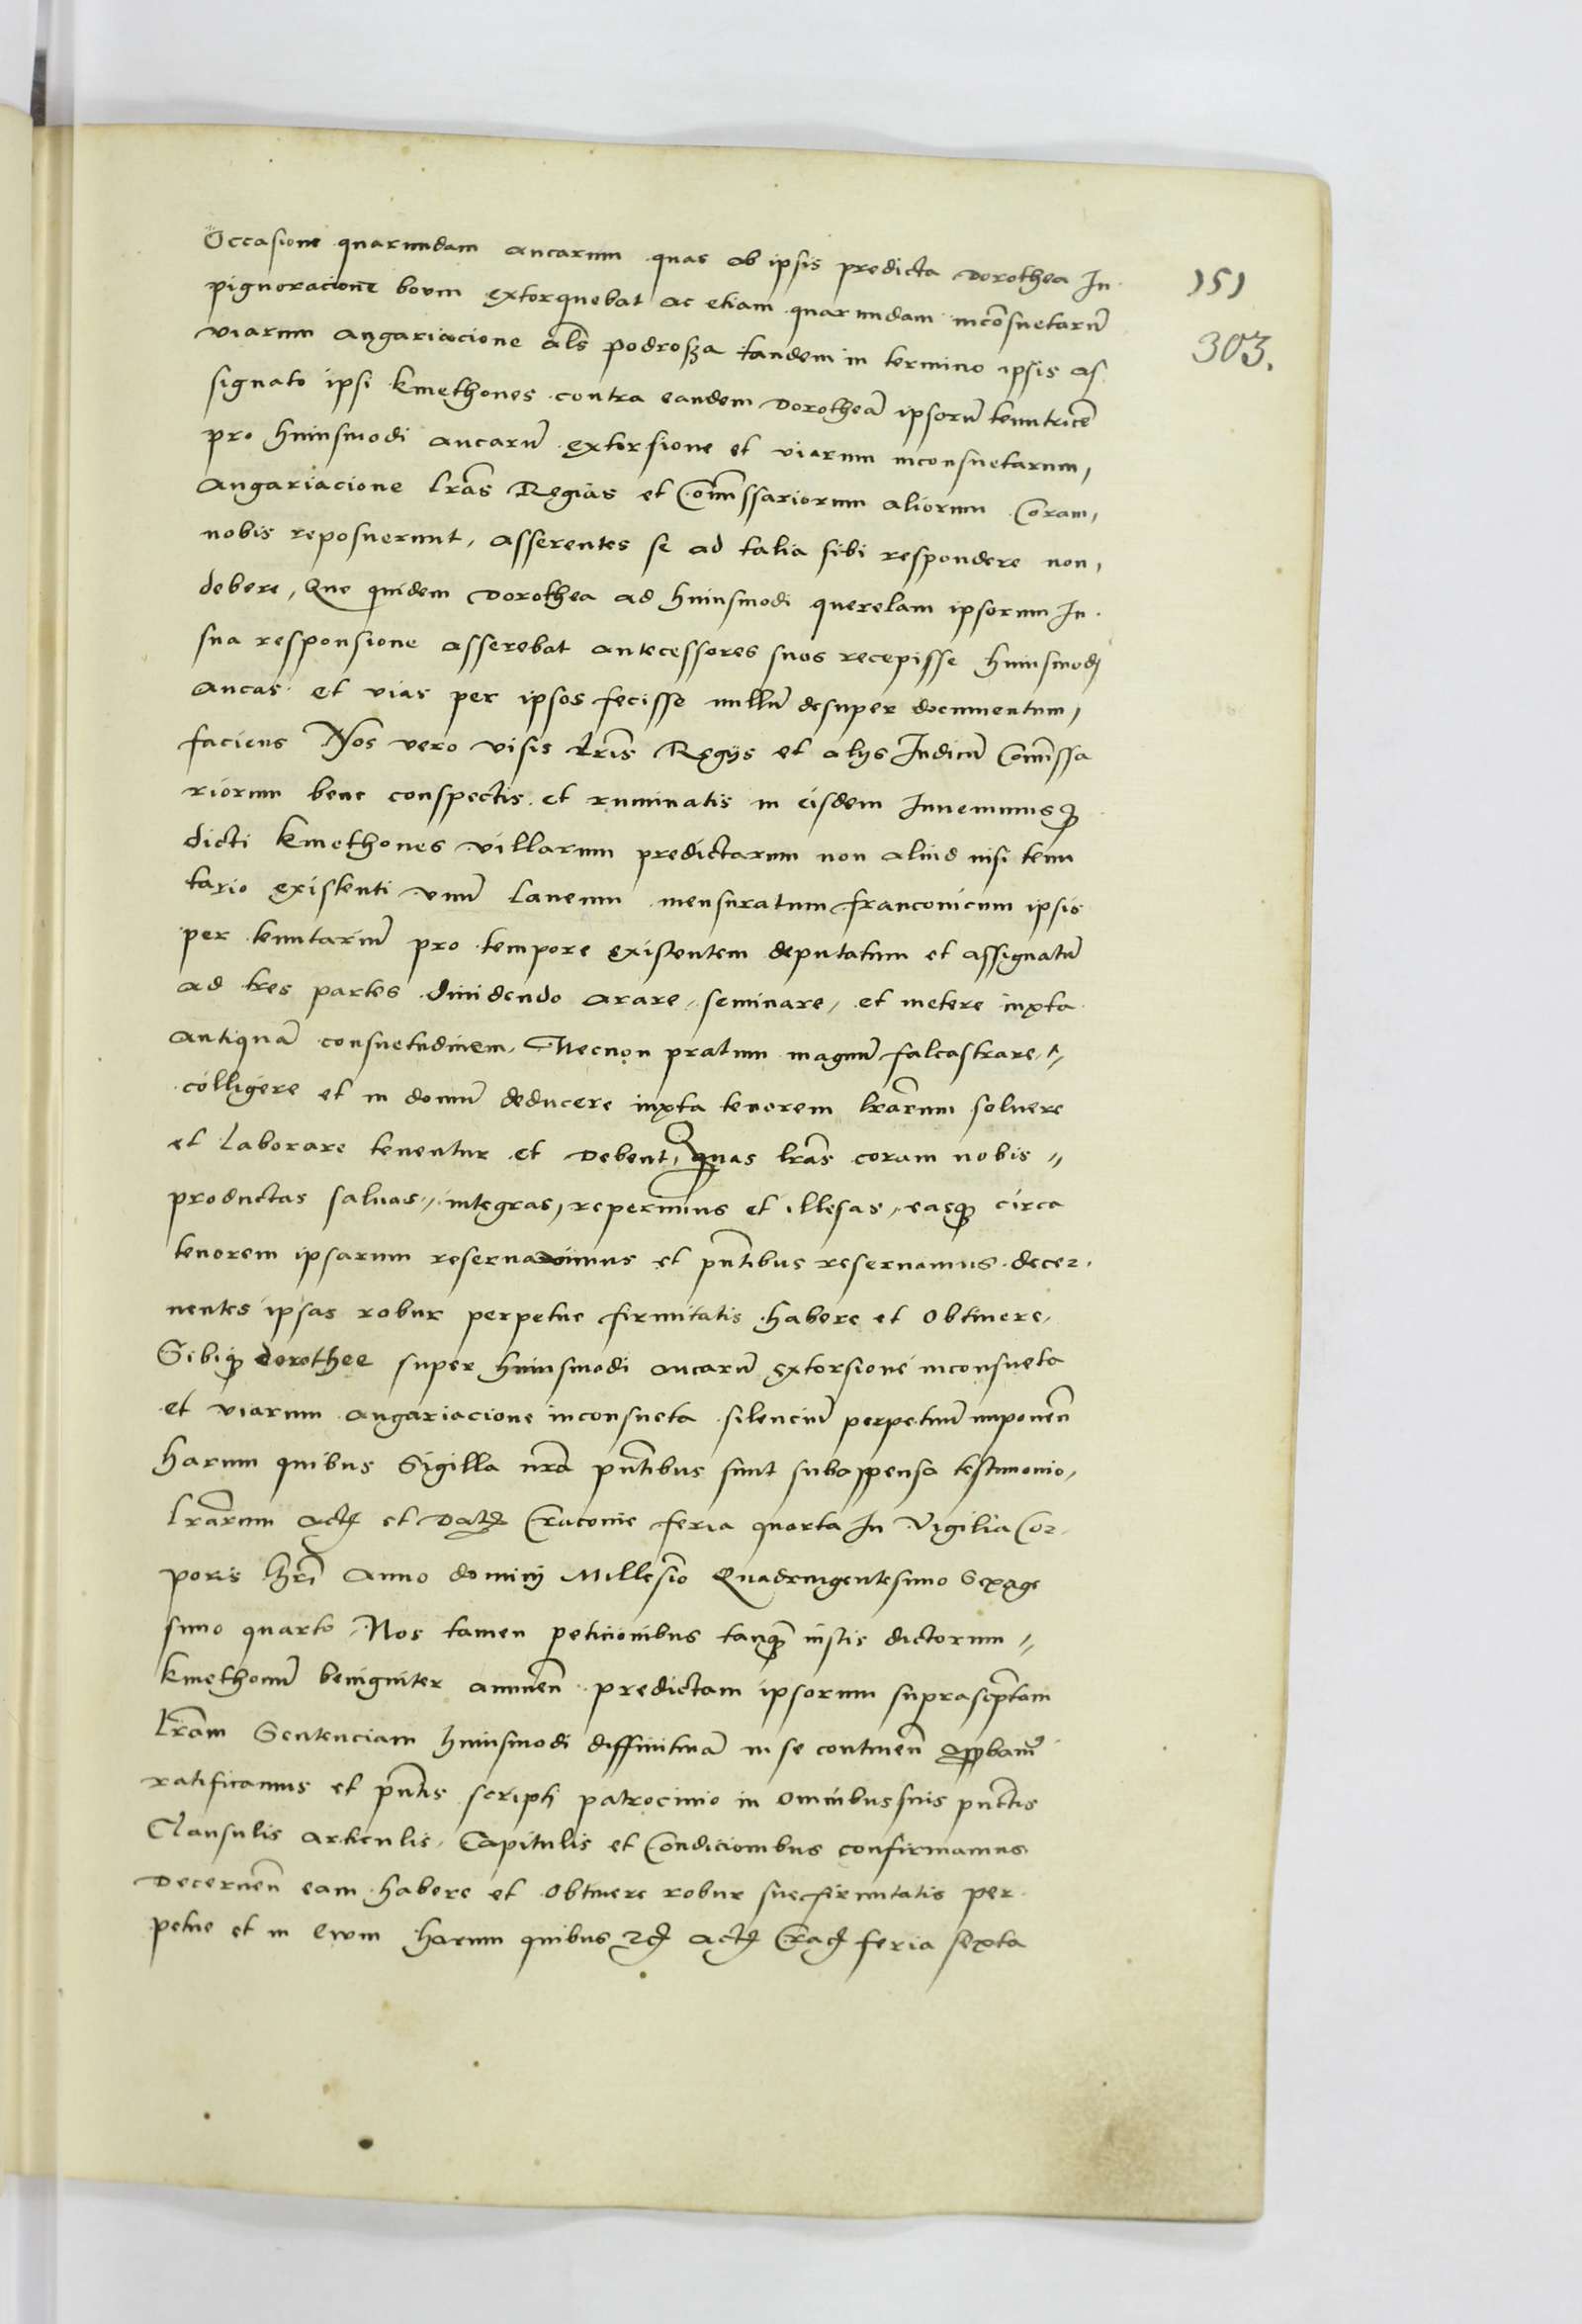 Occasione quarundam aucarum quas ab ipsis predicta Dorothea In
151
pignoracione boum extorquebat ac etiam quarundam inconsuetarū
303.
viarum angariacione als podrosza tandem in termino ipsis as
signato ipsi kmethones contra eandem Dorotheā ipsorū tenutricē
pro huiusmodi aucarū extorsione et viarum inconsuetarum,
angariacione lras Regias et Comissariorum aliorum Coram,
nobis reposuerunt, asserentes se ad talia sibi respondere non,
debere, Que quidem Dorothea ad huiusmodi querelam ipsorum In
sua responsione asserebat antecessores suos recepisse huiusmodj
aucas et vias per ipsos fecisse nullū desuper documentum,
faciens Nos vero visis lris Regijs et alijs Iudicū Comissa
riorum bene conspectis et ruminatis in eisdem Invenimus q
dicti kmethones villarum predictarum non aliud nisi tenu
tario existenti unū laneum mensuratum franconicum ipsis
per tenutariū pro tempore existentem deputatum et assignatū
ad tres partes dividendo arare, seminare, et metere iuxta
antiquā consuetudinem, Necnon pratum magnū falcastrare,
colligere et in domū deducere iuxta tenorem lrarum soluere
et laborare tenentur et Debent, Quas lras coram nobis "
productas saluas, integras, reperimus et illesas, easq circa
tenorem ipsarum reservavimus et pntibus reservamus decer
nentes ipsas robur perpetue firmitatis habere et obtinere,
Sibiq dorothee super huiusmodi aucarū extorsione inconsueta
et viarum angariacione inconsueta silenciū perpetuū imponen
harum quibus Sigilla nra pntibus sunt subappensa testimonio,
lrarum Act et Dat Cracovie feria quarta In Vigilia Cor
poris Chri Anno dominj Millesio Quadringentesimo Sexage
simo quarto, Nos tamen peticionibus tanq iustis dictorum "
kmethonū benigniter annuen predictam ipsorum suprascptam
lram Sentenciam huiusmodi diffinitivā in se continen appbam9
ratificamus et pntis scripti patrocinio in omnibus suis punctis
Clausulis articulis, Capitulis et Condicionibus confirmamus
Decernen eam habere et obtinere robur sue firmitatis per
petue et in Evum harum quibus etc Act Crac feria sexta